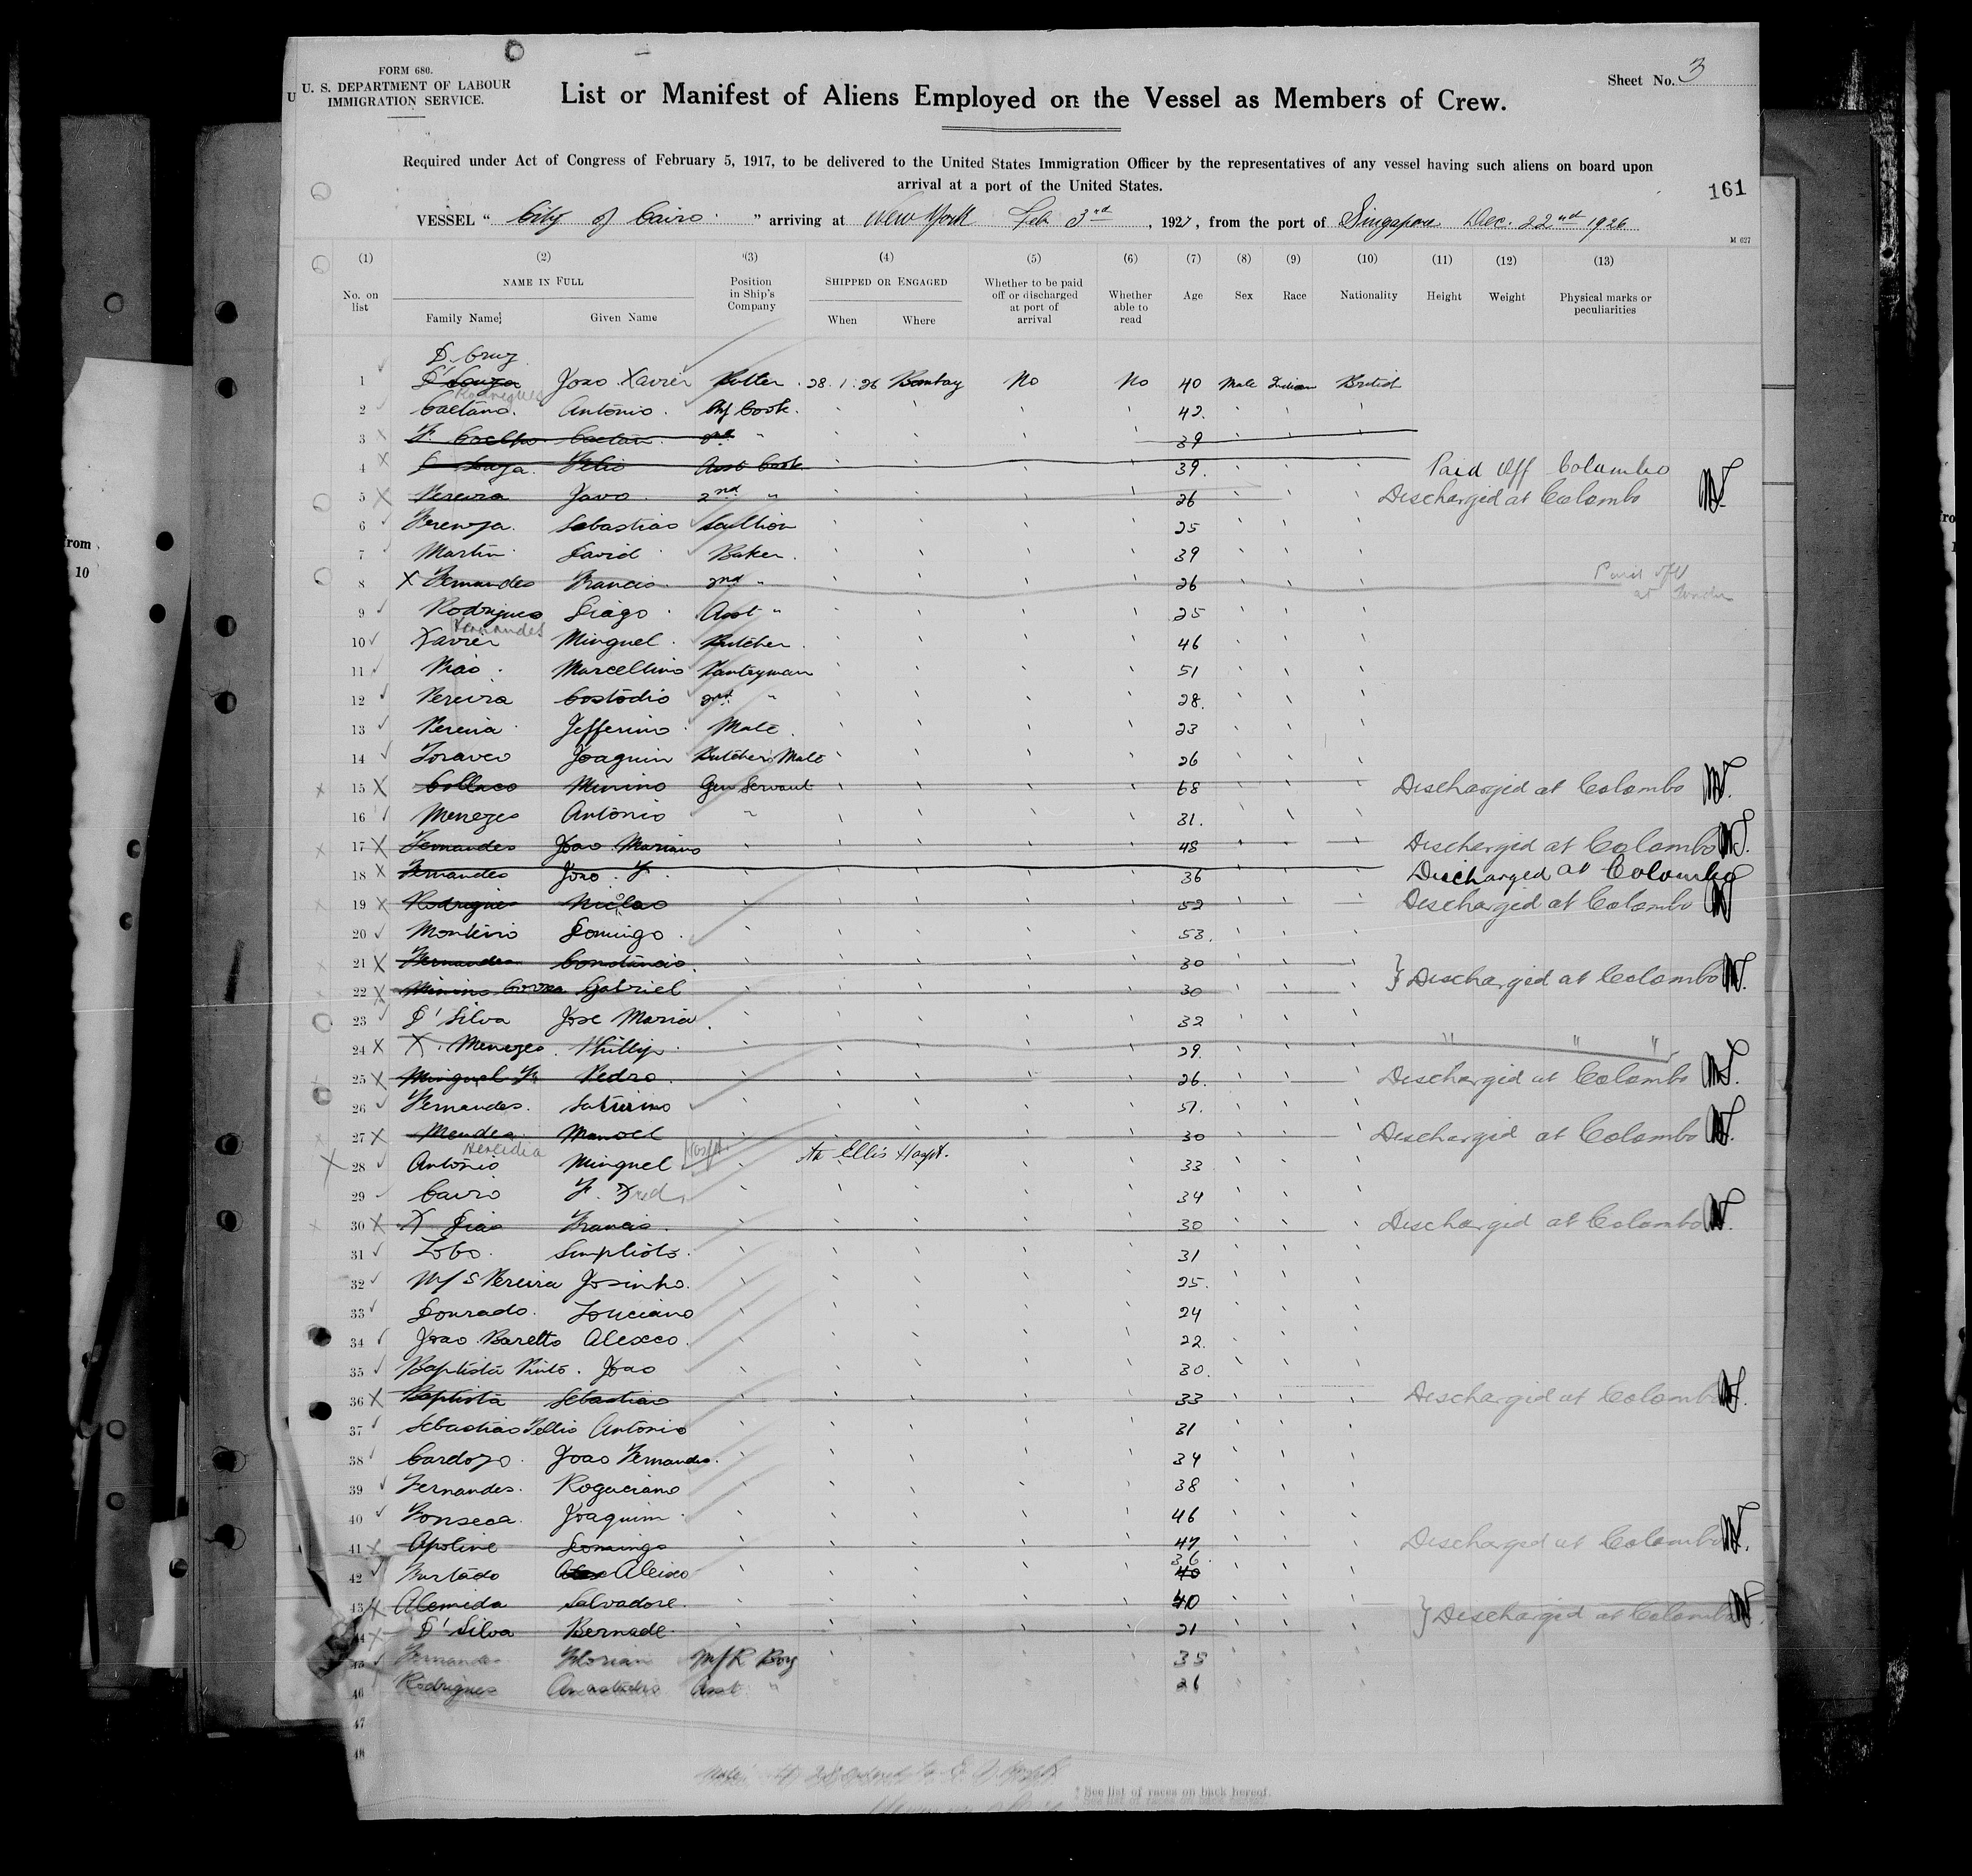 FORM 680.
U. S. DEPARTMENT OF LABOUR
U
IMMIGRATION SERVICE.
List or Manifest of Aliens Employed on the Vessel as Members of Crew.
Sheet No. 3
Required under Act of Congress of February 5, 1917, to be delivered to the United States Immigration Officer by the representatives of any vessel having such aliens on board upon
arrival at a port of the United States.
161
VESSEL " City of Cairo " arriving at New York Feb 3rd, 1927, from the port of Singapore Dec. 22nd 1926
M 627
(1) (2) (3) (4) (5) (6) (7) (8) (9) (10) (11) (12) (13)
No. on list NAME IN FULL Family Name Given Name Position in Ship's Company SHIPPED OR ENGAGED When Where Whether to be paid off or discharged at port of arrival Whether able to read Age Sex Race Nationality Height Weight Physical marks or peculiarities
D. Cruz
1 D'Souza Joao Xavier Butler 28.1.26 Bombay No No 40 Male Indian British
Rodrigues
2 Caetano. Antonio. Chf Cook. 42.
3 F. Coelho Caetan. 2nd " 39
4 D Souza. Felic Asst Cook 39. Paid Off Colombo
5 X Pereira Javo 2nd " 26 Discharged at Colombo
6 Sebastiao Scullion 25
7 Martin David Baker. 39
8 X Fernandes Francis. 2nd " 26 Paid off at
9 Rodrigues Diago Asst " 25
Fernandes
10 Xavier Minguel. Butcher. 46
11 Marcellino Pantryman 51
12 Pereira Costodio 2nd " 28.
13 Pereira Jefferino Mate. 23
14 Joaquim Butcher's Mate 26
15 X Collaco Minino Gen Servant 68 Discharged at Colombo
16 Menezes Antonio " 31.
17 X Fernandes Joao Mariano 48 Discharged at Colombo
18 X Fernandes Joao. F. 36 Discharged at Colombo
19 X Rodrigues Niclao 52 Discharged at Colombo
20 Monteiro Domingo. 53.
21 X Fernandes Constancio. 30 } Discharged at Colombo
22 X Minino Correa Gabriel 30
23 D'Silva Jose Maria. 32
24 X X. Menezes. Phillip. 29. " " "
25 X Minguel Fr Pedro. 26. Discharged at Colombo
26 Fernandes. Saturino 51.
27 X Mendes Manoel 30 Discharged at Colombo
Heredia
28 X Antonio Minguel Hospt. At Ellis Hospt. 33
29 Cairo F. Fred. 34
30 X X Dias Francis. 30 Discharged at Colombo
31 Lobo. 31
32 M/S Pereira Josinho. 25.
33 Dourado. Louciano 24
34 Joao Baretto Alexeo. 22.
35 Baptista Pinto. Joao 30.
36 X Baptista Sebastiao 33 Discharged at Colombo
37 Sebastiao Tellis Antonio 31
38 Cardozo. Joao Fernandes. 34
39 Fernandes. Rogaciano 38
40 Fonseca. Joaquim 46
41 X Apoline Domingo 47 Discharged at Colombo
36.
42 Furtado Aleixo 40
43 X Alemida Salvadore. 40 } Discharged at Colombo
44 X D'Silva Bernade. 21
45 Fernandes Florian M/R Boy 35
46 Rodrigues Asst " 26
47
48
Note:
See list of races on back hereof.